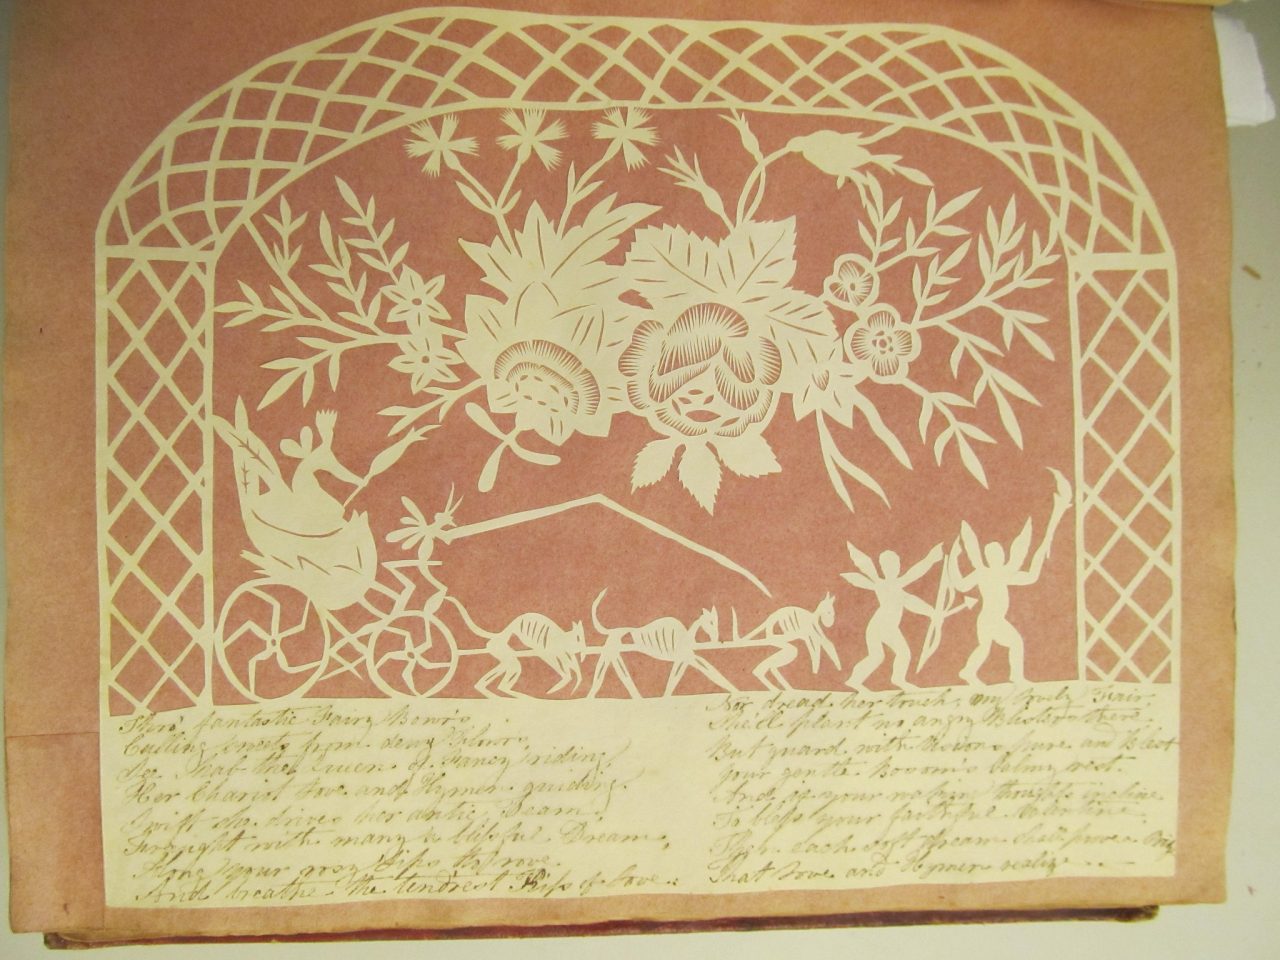 Thro' fantastic Fairy Bow'rs
Culling sweets from dewy Flow'rs,
See Mab the Queen of Fancy riding,
Her Chariot Love and Hymen guiding.
Swift she drives her antic Team,
Fraught with many a blissful Dream,
Along your rosy Lips to rove
And breathe the tend'rest Kiss of Love.
Nor dread her touch, my lovely Fair,
She'll plant no angry Blisters there,
But guard with Visions pure and Blest
your gentle Bosom's balmy rest.
And as your waking thoughts incline
To bless your faithful Valentine,
Then each soft Dream shall prove
That Love and Hymen realize